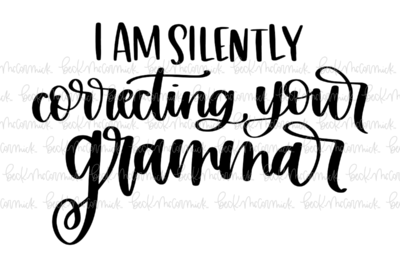 I AM SILENTLY
correcting your
grammar